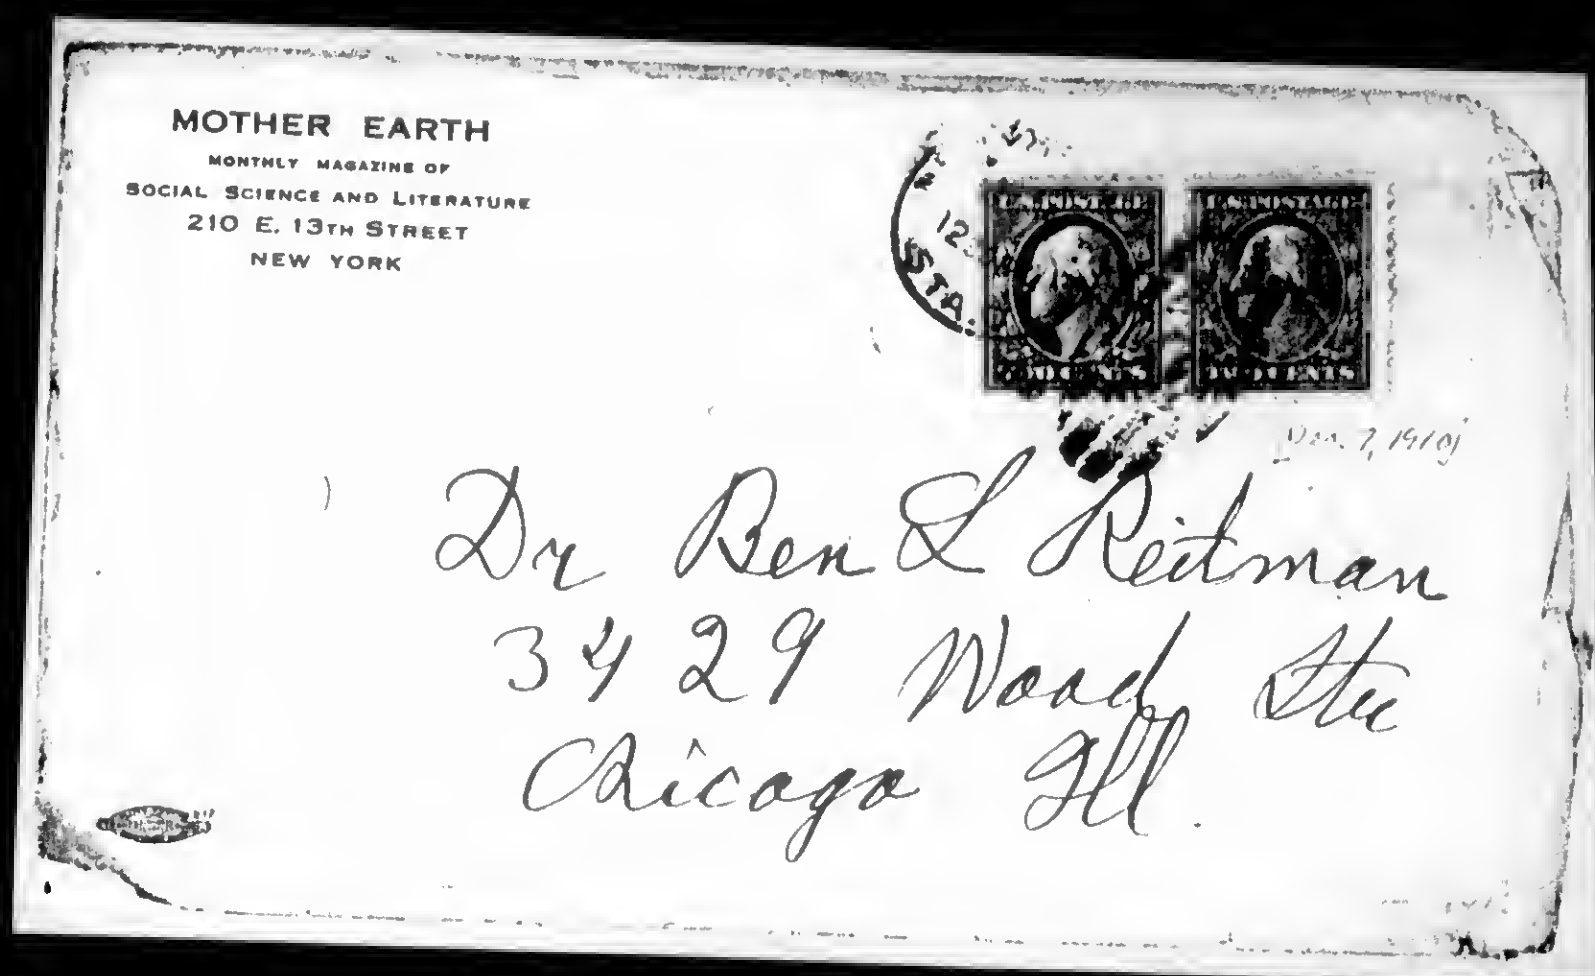 MOTHER EARTH
MONTHLY MAGAZINE OF
SOCIAL SCIENCE AND LITERATURE
210 E. 13TH STREET
NEW YORK
12
STA.
U.S. POSTAGE U.S. POSTAGE
TWO CENTS TWO CENTS
7, 1910]
Dr Ben L Reitman
3429 Wood Stre
Chicago Ill.